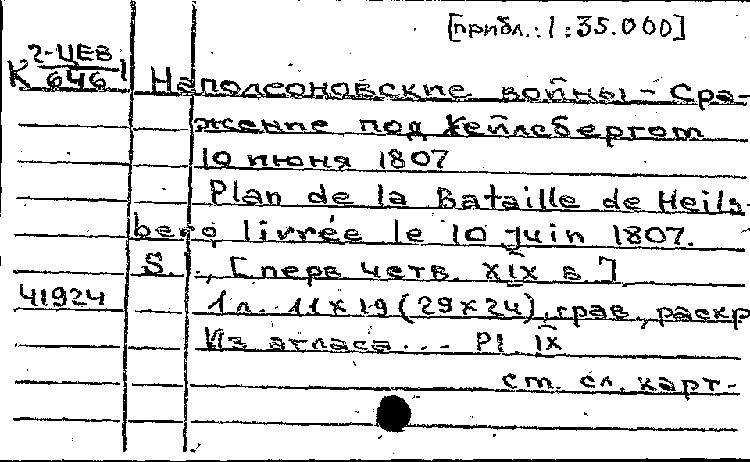 [прибл.: 1:35.000]
2-ЦЕВ
К 646 1
Наполеоновские войны - Сра-
жение под Хейльсбергом
10 июня 1807
Plan de la Bataille de Heils-
berg livrée le 10 Juin 1807.
S. l., [перв четв. XIX в.]
41924
1 л. 11 x 19 (29 x 24), грав., раскр
Из атласа... Pl. IX
см. сл. карт-